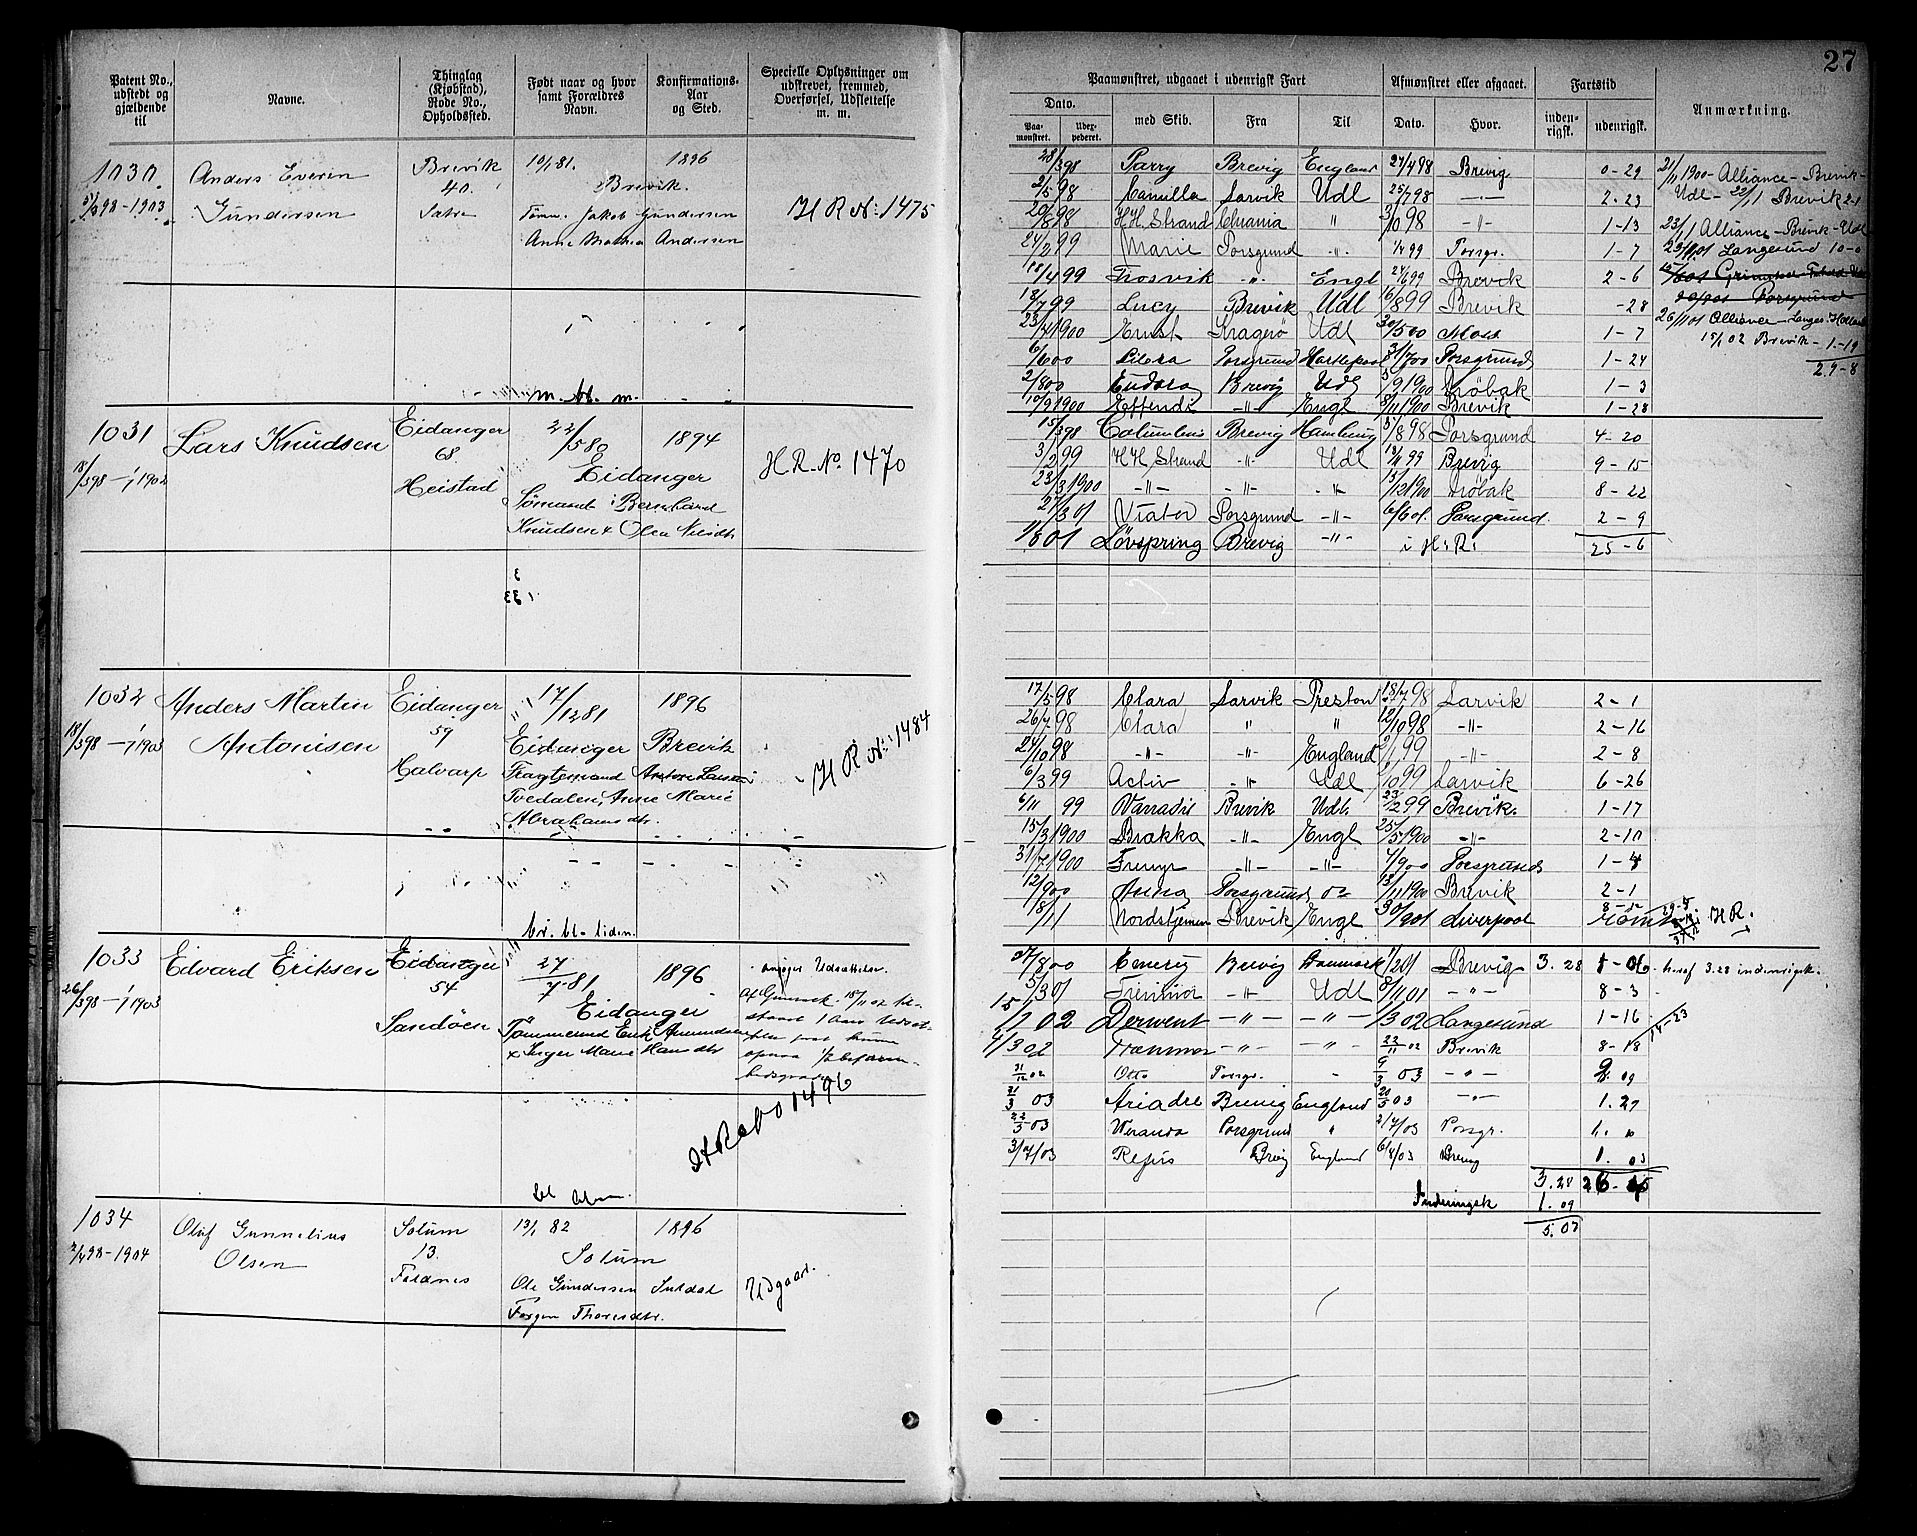 27
Patent No., udstedt og gjældende til
Navne.
Thinglag (Kjøbstad), Rode No., Opholdssted.
Født naar og hvor samt Forældres Navn.
Konfirmations-Aar og Sted.
Specielle Oplysninger om udskrevet, fremmed, Overførsel, Udslettelse m. m.
Paamønstret, udgaaet i udenrigsk Fart
Afmønstret eller afgaaet.
Fartstid
Anmærkning.
Dato.
Paa-mønstret.
med Skib.
Fra
Til
Dato.
Hvor.
inden-rigsk.
udenrigsk.
1030
Anders Everin
Brevik
10/1 81.
1896
5/3 98-1903
Gundersen
40.
Brevik.
H R No: 1475
Tømm. Jakob Gundersen
Anne Mathea Andersen
28/3 98 Parry Brevig England 27/4 98 Brevig 0-29
2/5 98 Camilla Larvik Udl 25/7 98 -"- 2-23
20/8 98 H H. Strand Chrania " 3/10 98 -"- 1-13
24/2 99 Marie Porsgrund -"- 1/4 99 Porsgr. 1-7
18/4 99 Frosvik -"- Engl 24/6 99 Brevik 2-6
18/7 99 Lucy Brevik Udl 16/8 99 Brevik -28
23/4 1900 Ernst Kragerø Udl 30/5 00 Moss 1-7
6/6 00 Porsgrund 31/7 00 Porsgrund 1-24
2/8 00 Eudora Brevig Udl 5/9 1900 Drøbak 1-3
10/9 1900 Effendi -"- Engl 8/11 1900 Brevik 1-28
21/11 1900 - Alliance - Brevik -
Udl - 22/1 Brevik 2-1
23/1 Alliance - Brevik - Udl
Langesund 10-0
Porsgrund
26/11 01 Alliance - Langes. Holland
15/1 02 Brevik - 1-19
29-8
m. bl. m.
1031
Lars Knudsen
Eidanger
22/5 80
1894
18/3 98 - 1/1 1902
68.
Eidanger
H R. No. 1470
Heistad
Sømand Bernhard
Knudsen & Olea Nilsdtr
15/3 98 Columbus Brevig Hamburg 5/8 98 Porsgrund 4-20
3/2 99 H H Strand -"- Udl 18/11 99 Brevig 9-15
23/3 1900 -"- -"- -"- 15/12 1900 Drøbak 8-22
27/3 01 Viator Porsgrund -"- 6/6 01. Porsgrund. 2-9
1/8 01 Løvspring Brevig -"- i H. R. 25-6
1032
Anders Martin
Eidanger
17/12 81
1896
18/3 98 - 1/1 1903
Antonisen
59
Eidanger
Brevik
H R No: 1484
Halvarp
Fragtemand
Tvedalen, Anne Marie
Abrahamsdtr.
17/5 98 Clara Larvik Preston 18/7 98 Larvik 2-1
26/7 98 Clara " " 12/10 98 -"- 2-16
24/10 98 -"- -"- England 2/1 99 -"- 2-8
6/3 99 Activ -"- Udl 2/10 99 Larvik 6-26
6/11 99 Brevik Udl. 23/12 99 Brevik. 1-17
15/3 1900 Brakka -"- Engl 25/5 1900 -"- 2-10
31/7 1900 -"- -"- 4/9 00 Porsgrund 1-4
12/9 00 Anna Porsgrund 13/11 1900 Brevik 2-1
18/11 Nordstjernen Brevik Engl 30/9 01 Liverpool H R.
br. bl. liden.
1033
Edvard Eriksen
Eidanger
27/7 81
1896
26/3 98 - 1/1 1903
54
Eidanger
Sandøen
Tømmermd Erik Amundsen
& Inger Marie Hansdtr
HR No 1496
27/8 00 Emery Brevig Danmark Brevig 3.28 heraf 3.28 indenrigsk.
3/3 01 -"- Udl 8/11 01 -"- 8-3
15/1 02 Derwent -"- -"- 1/3 02 Langesund 1-16
4/3 02 -"- -"- 22/11 02 Brevik 8-18
14-23
31/12 02 Otto Porsgr. - 9/3 03 -"- 2.09
31/3 03 Ariadne Brevig England 20/5 03 -"- 1.27
22/5 03 Veranda Porsgrund " 2/7 03 Porsgr.
3/7 03 Brevig England 6/8 03 Brevig 1.03
3.28
1.09
5.07
1034
Oluf Gunnelius
Solum
13/1 82
1896
2/4 98-1904
Olsen
13.
Solum
Feldnes
Ole Gundersen
Thoresdtr.
Udgaar.